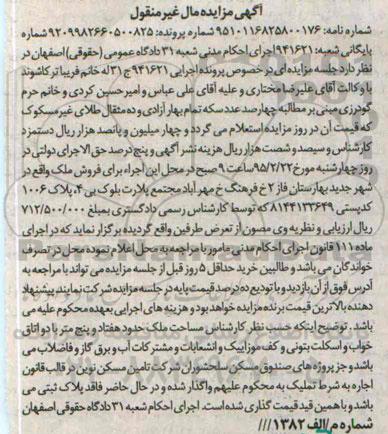 آگهی مزایده مال غیر منقول
شماره نامه: ۹۵۱۰۱۱۶۸۲۵۸۰۰۱۷۶ شماره پرونده: ۹۲۰۹۹۸۲۶۶۰۵۰۰۸۲۵ شماره
بایگانی شعبه: ۹۴۱۶۲۱ اجرای احکام مدنی شعبه ۳۱ دادگاه عمومی (حقوقی) اصفهان در
نظر دارد جلسه مزایده ای در خصوص پرونده اجرایی ۹۴۱۶۲۱ ج ۳۱ له خانم فریبا تر کاشوند
با وکالت آقای علیرضا مختاری و علیه آقای علی عباس و امیرحسین کردی و خانم حرم
گودرزی مبنی بر مطالبه چهارصد عدد سکه تمام بهار آزادی و ده مثقال طلای غیر مسکوک
که قیمت آن در روز مزایده استعلام می گردد و چهار میلیون و پانصد هزار ریال دستمزد
کارشناس و سیصد و شصت هزار ریال هزینه نشر آگهی و پنج درصد حق الاجرای دولتی در
روز چهارشنبه مورخ ۹۵/۲/۲۲ ساعت ۹ صبح در محل این اجراء برای فروش ملک واقع در
شهر جدید بهارستان فاز ۲ خ فرهنگ خ مهر آباد مجتمع پلارت بلوک بی ۴، پلاک ۱۰۰۶
کدپستی ۸۱۴۴۱۳۳۶۴۹ که توسط کارشناس رسمی دادگستری بمبلغ ۷۱۲/۵۰۰/۰۰۰
ریال ارزیابی و نظریه وی مصون از تعرض طرفین واقع گردیده برگزار نماید که در اجرای
ماده ۱۱۱ قانون اجرای احکام مدنی مامور با مراجعه به محل اعلام نموده محل در تصرف
خواندگان می باشد و طالبین خرید حداقل ۵ روز قبل از جلسه مزایده می تواند با مراجعه به
آدرس فوق از آن بازدید و با تودیع ده درصد قیمت پایه در جلسه مزایده شرکت نمایند پیشنهاد
دهنده بالاترین قیمت برنده مزایده خواهد بود و هزینه های اجرایی بعهده محکوم علیه می
باشد. توضیح اینکه حسب نظر کارشناس مساحت ملک حدود هفتاد و پنج متر با دو اتاق
خواب و اسکلت بتونی و کف موزاییک و انشعابات و مشترکات آب و برق گاز و فاضلاب می
باشد و جز پروژه های صندوق مسکن سلحشوران شرکت تامین مسکن نوین در قالب قانون
اجاره به شرط تملیک به محکوم علیهم واگذار شده و در حال حاضر فاقد پلاک ثبتی می
باشد و با همین قید قیمت گذاری شده است. اجرای احکام شعبه ۳۱ دادگاه حقوقی اصفهان
شماره م/الف ۱۳۸۲///